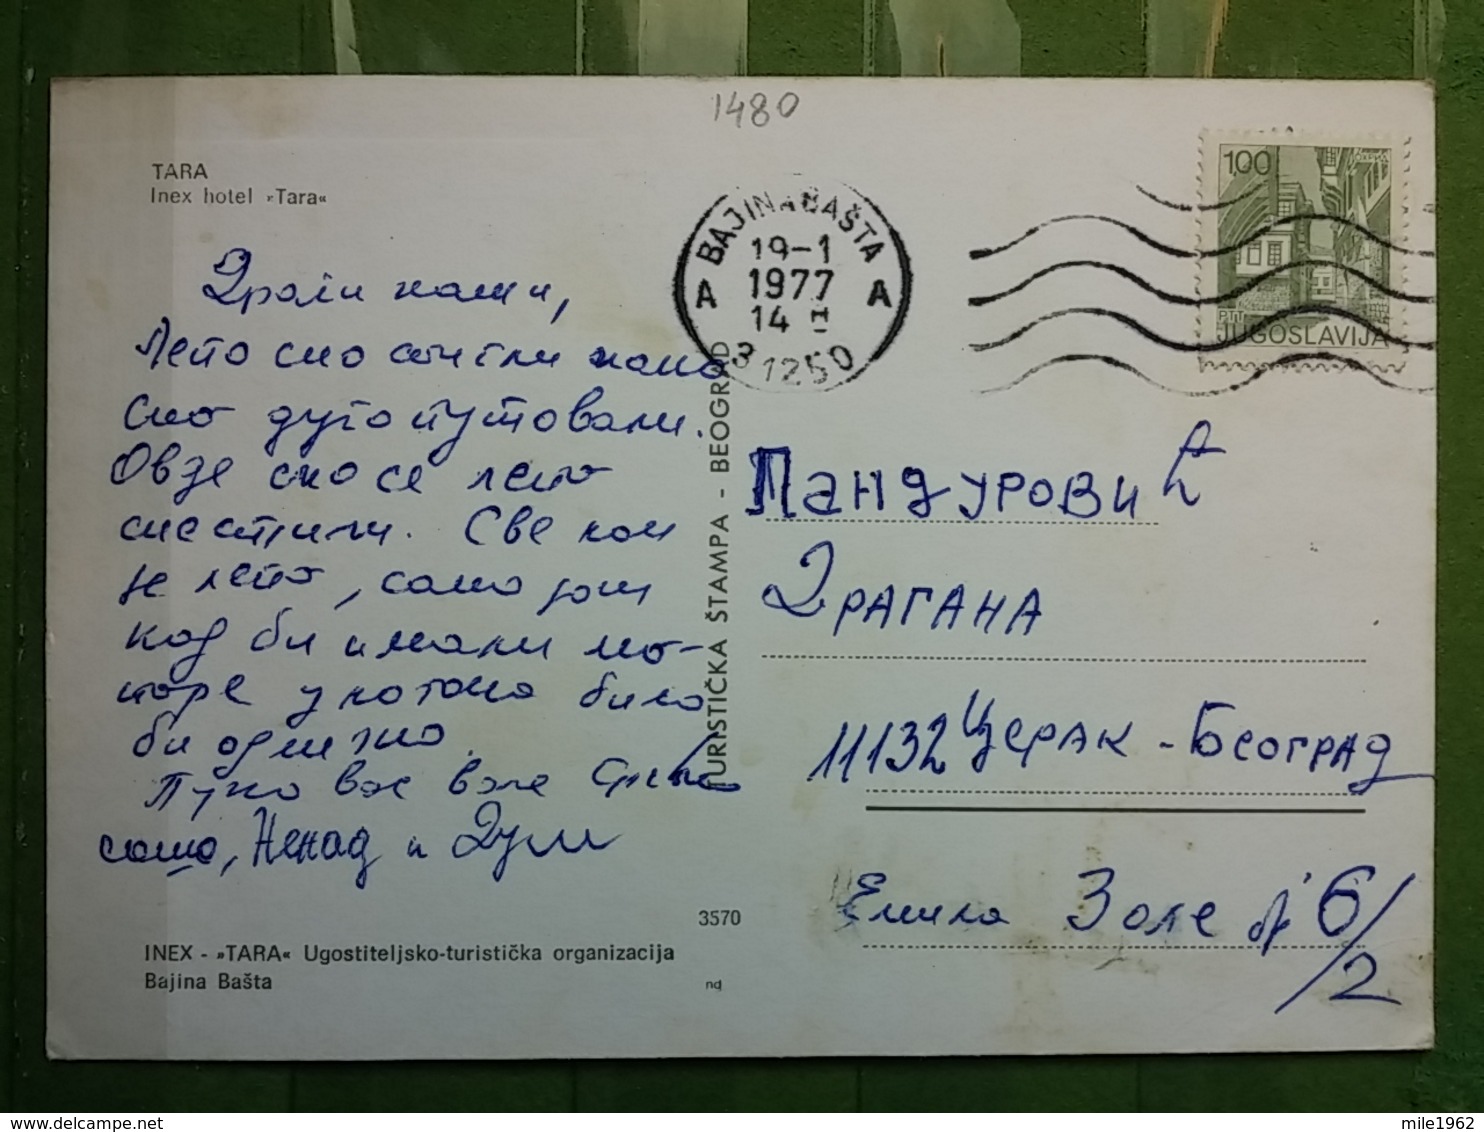 1480
TARA
Inex hotel »Tara«
BAJINA BAŠTA
19-1
1977
14
A A
31250
1,00
ОХРИД
PTT
JUGOSLAVIJA
Драги наши,
Лепо смо стигли иако
смо дуго путовали.
Овде смо се лепо
сместили. Све нам
је лепо, само још
кад би имали мо-
торе у колено било
би одлично.
Пуно вас воле
Ненад и
TURISTIČKA ŠTAMPA - BEOGRAD
ПАНДУРОВИЋ
ДРАГАНА
11132 ЦЕРАК - БЕОГРАД
Емила Золе бр 6/2
3570
INEX - »TARA« Ugostiteljsko-turistička organizacija
Bajina Bašta
nd
mile1962